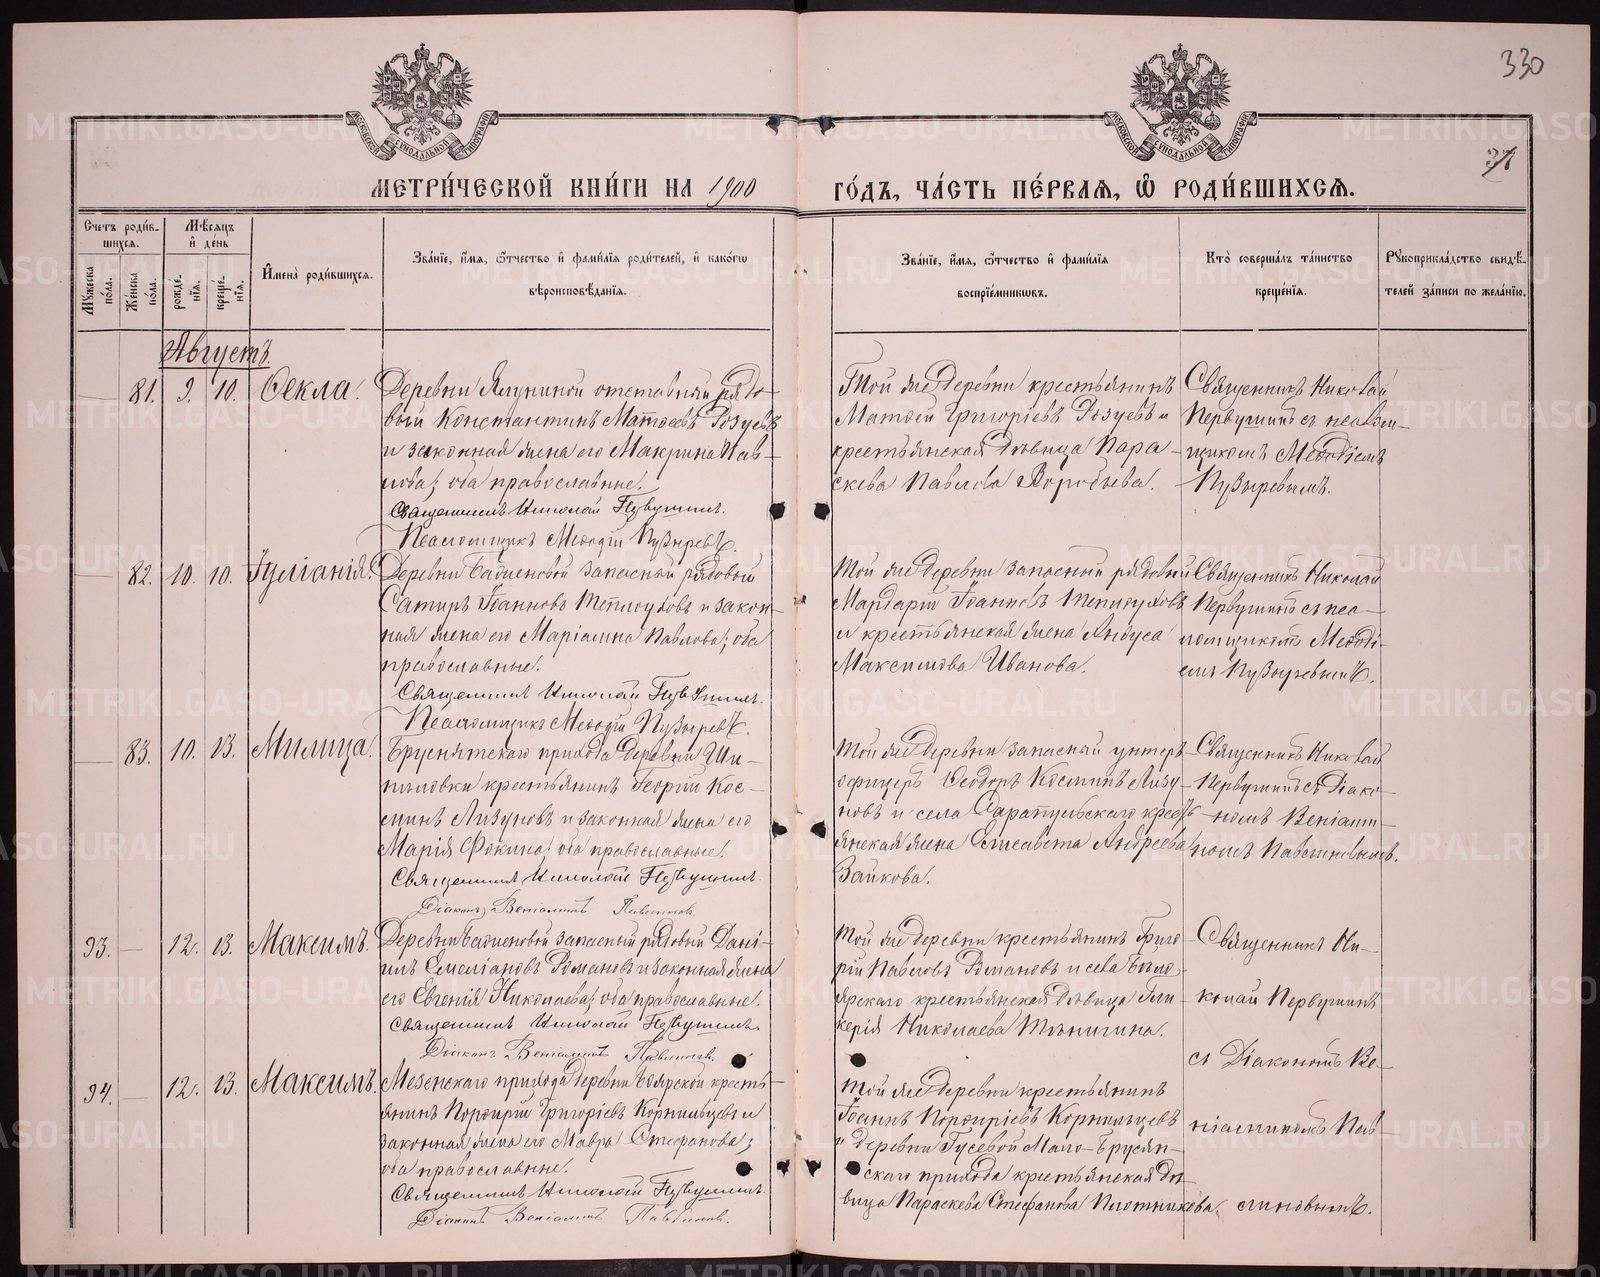 330
37
МОСКОВСКОЙ СѴНОДАЛЬНОЙ ТИПОГРАФІИ
МОСКОВСКОЙ СѴНОДАЛЬНОЙ ТИПОГРАФІИ
МЕТРИ́ЧЕСКОЙ КНИ́ГИ НА 1900 ГО́ДЪ, ЧА́СТЬ ПЕ́РВАѦ, Ѡ҆ РОДИ́ВШИХСѦ.
Счетъ роди́в-
шихсѧ.
Мꙋжеска по́ла.
Же́нска по́ла.
Мѣ́сѧцъ
и҆ де́нь
рожде́-
нїѧ.
креще́-
нїѧ.
И҆мена̀ роди́вшихсѧ.
Зва́нїе, и҆́мѧ, ѻ҆́тчество и҆ фами́лїѧ роди́телей, и҆ како́гѡ
вѣроисповѣ́данїѧ.
Зва́нїе, и҆́мѧ, ѻ҆́тчество и҆ фами́лїѧ
воспрїе́мникѡвъ.
Кто̀ соверша́лъ та́инство
креще́нїѧ.
Рꙋкоприкла́дство свидѣ́-
телей за́писи по жела́нїю.
Августъ.
81. 9. 10. Ѳекла.
Деревни Ялуниной отставной рядо-
вой Константинъ Матѳеевъ Розуевъ
и законная жена его Макрина Пав-
лова; оба православные.
Священникъ Николай Первушинъ.
Псаломщикъ Меѳодій Пузыревъ.
Той же деревни крестьянинъ
Матѳей Григорієвъ Розуевъ и
крестьянская дѣвица Пара-
скева Павлова Воробьева.
Священникъ Николай
Первушинъ съ псалом-
щикомъ Меѳодіемъ
Пузыревымъ.
82. 10. 10. Іуліанія.
Деревни запасной рядовой
Сатиръ Іоанновъ Теплоуховъ и закон-
ная жена его Маріамна Павлова; оба
православные.
Священникъ Николай Первушинъ.
Псаломщикъ Меѳодій Пузыревъ.
Той же деревни запасный рядовый
Мардарій Іоанновъ Теплоуховъ
и крестьянская жена Анѳуса
Максимова Иванова.
Священникъ Николай
Первушинъ съ пса-
ломщикомъ Меѳоді-
емъ Пузыревымъ.
83. 10. 13. Милица.
Бруснятскаго прихода деревни Ши-
пиловки крестьянинъ Георгій Кос-
минъ Лизуновъ и законная жена его
Марія Фокина; оба православные.
Священникъ Николай Первушинъ.
Діаконъ Веніаминъ
Той же деревни запасный унтеръ-
офицеръ Ѳеодоръ Косминъ Лизу-
новъ и села Сарапульскаго кресть-
янская жена Елисавета Андреева
Зайкова.
Священникъ Николай
Первушинъ съ Діако-
номъ Веніами-
номъ
93. 12. 13. Максимъ.
Деревни запасный рядовый Дані-
илъ Емеліановъ Романовъ и законная жена
его Евгенія Николаева; оба православные.
Священникъ Николай Первушинъ.
Діаконъ Веніаминъ
Той же деревни крестьянинъ Григо-
рій Павловъ Романовъ и села Бѣло-
ярскаго крестьянская дѣвица Гли-
керія Николаева
Священникъ Ни-
колай Первушинъ
съ Діакономъ Ве-
94. 12. 13. Максимъ.
Мезенскаго прихода деревни Боярской кресть-
янинъ Порфирій Григорієвъ Корнильцевъ и
законная жена его Мавра Стефанова;
оба православные.
Священникъ Николай Первушинъ.
Діаконъ Веніаминъ
Той же деревни крестьянинъ
Іоаннъ Порфиріевъ Корнильцевъ
и деревни Гусевой Мало-Брусян-
скаго прихода крестьянская дѣ-
вица Параскева Стефанова Плотникова.
ніаминомъ